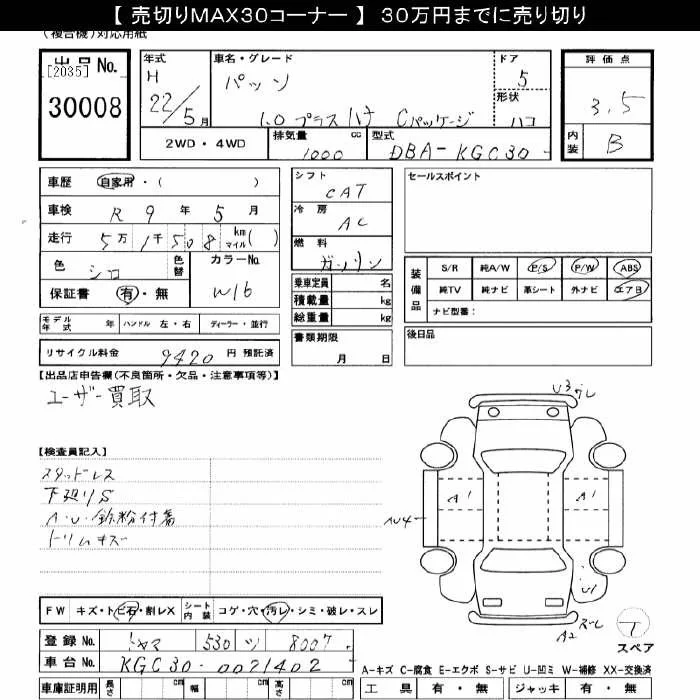 【 売切りMAX30コーナー 】 30万円までに売り切り
(複合機)対応用紙
出品 No.
[2035]
30008
年式 H 22/5月
車名・グレード パッソ 1.0 プラスハナ Cパッケージ
ドア 5
形状 ハコ
評価点 3.5
内装 B
2WD・4WD
排気量 1000 cc
型式 DBA-KGC30
車歴 自家用・( )
車検 R 9年 5月
走行 5万 1千 508 km マイル( )
色 シロ 色替
カラーNo. W16
保証書 有・無
モデル年式 年 ハンドル 左・右 ディーラー・並行
リサイクル料金 9420 円 預託済
シフト CAT
冷房 AC
燃料 ガソリン
乗車定員 名
積載量 kg
総重量 kg
書類期限 月 日
セールスポイント
装備品 S/R 純A/W P/S P/W ABS
純TV 純ナビ 革シート 外ナビ エアB
ナビ型番:
後日品
【出品店申告欄(不良箇所・欠品・注意事項等)】
ユーザー買取
【検査員記入】
スタッドレス
下廻りS
A・U・鉄粉付着
トリムキズ
U3
A1
A1
AU4
U1
A2
スペア
FW キズ・トビ石・割レX シート内装 コゲ・穴・汚レ・シミ・破レ・スレ
登録 No. 530 ツ 8007
車台 No. KGC30-0021402
車庫証明用 長さ cm 幅 cm 高さ cm
A-キズ C-腐食 E-エクボ S-サビ U-凹ミ W-補修 XX-交換済
工具 有・無 ジャッキ 有・無